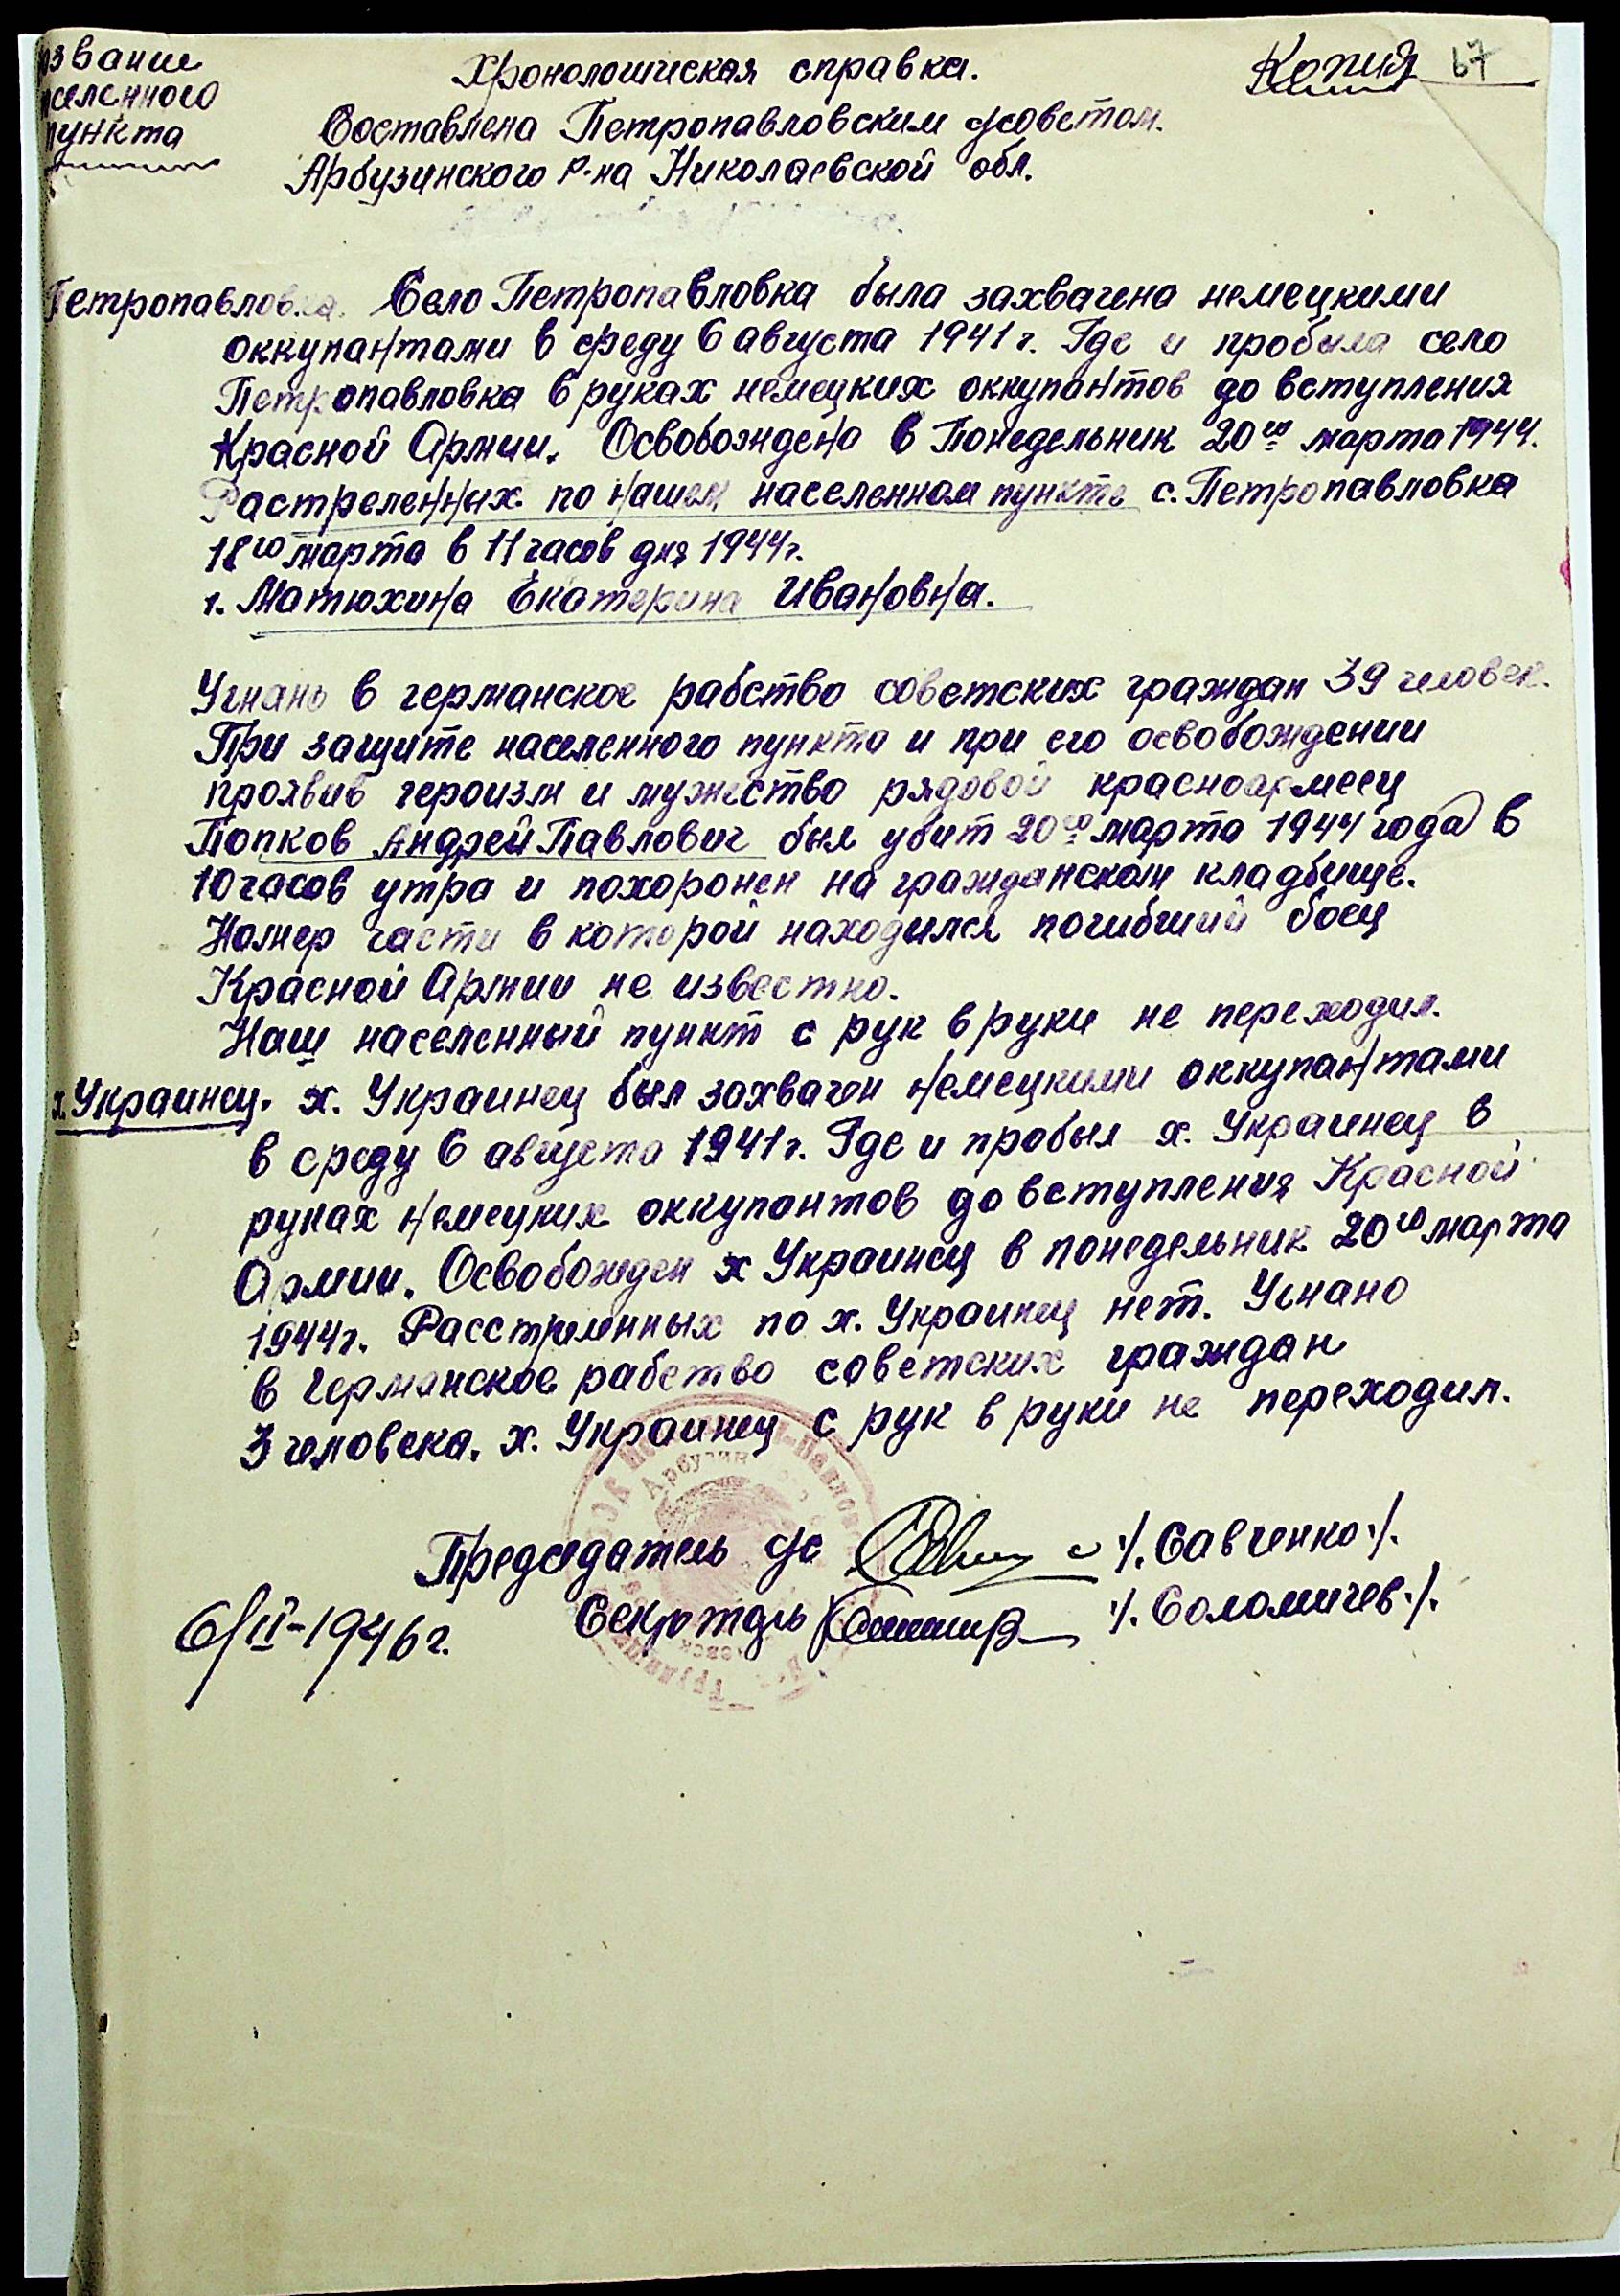 Название
населенного
пункта
Хронологическая справка.
Копия 67
Составлена Петропавловским с/советом.
Арбузинского р-на Николаевской обл.
Петропавловка. Село Петропавловка была захвачена немецкими
оккупантами в среду 6 августа 1941 г. Где и пробыла село
Петропавловка в руках немецких оккупантов до вступления
Красной Армии. Освобождена в Понедельник 20го марта 1944.
Растреленных по нашем населенном пункте с. Петропавловка
18го марта в 11 часов дня 1944г.
1. Матюхина Екатерина Ивановна.
Угнано в германское рабство советских граждан 39 человек.
При защите населенного пункта и при его освобождении
проявив героизм и мужество рядовой красноармеец
Попков Андрей Павлович был убит 20го марта 1944 года в
10 часов утра и похоронен на гражданском кладбище.
Номер части в которой находился погибший боец
Красной Армии не известно.
Наш населенный пункт с рук в руки не переходил.
х. Украинец. х. Украинец был захвачен немецкими оккупантами
в среду 6 августа 1941г. Где и пробыл х. Украинец в
руках немецких оккупантов до вступления Красной
Армии. Освобожден х Украинец в понедельник 20го марта
1944г. Расстреленных по х. Украинец нет. Угнано
в Германское рабство советских граждан
3 человека. х. Украинец с рук в руки не переходил.
Председатель с/с /.Савченко./.
Секретарь /.Соломичев./.
6/II-1946г.